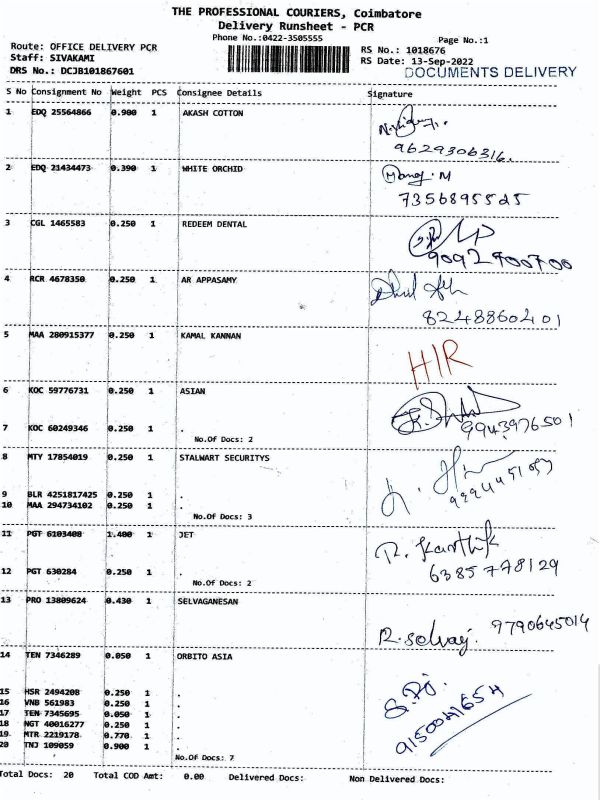 THE PROFESSIONAL COURIERS, Coimbatore
Delivery Runsheet - PCR
Phone No.:0422-3505555
Page No.:1
Route: OFFICE DELIVERY PCR
RS No.: 1018676
Staff: SIVAKAMI
RS Date: 13-Sep-2022
DRS No.: DCJB101867601
DOCUMENTS DELIVERY
S No Consignment No Weight PCS Consignee Details Signature
1 EDQ 25564866 0.900 1 AKASH COTTON
9629306316.
2 EDQ 21434473 0.390 1 WHITE ORCHID
Manoj. M
7356895525
3 CGL 1465583 0.250 1 REDEEM DENTAL
9092700700
4 RCR 4678350 0.250 1 AR APPASAMY
8248860401
5 MAA 280915377 0.250 1 KAMAL KANNAN
HIR
6 KOC 59776731 0.250 1 ASIAN
9943976501
7 KOC 60249346 0.250 1 .
No.Of Docs: 2
8 MTY 17854019 0.250 1 STALWART SECURITYS
9 BLR 4251817425 0.250 1 .
10 MAA 294734102 0.250 1 .
No.Of Docs: 3
11 PGT 6103408 1.400 1 JET
R. Karthik
6385778129
12 PGT 630284 0.250 1 .
No.Of Docs: 2
13 PRO 13809624 0.430 1 SELVAGANESAN
R. Selvaj. 9790645014
14 TEN 7346289 0.050 1 ORBITO ASIA
15 HSR 2494208 0.250 1 .
16 VNB 561983 0.250 1 .
17 TEN 7345695 0.050 1 .
18 NGT 40016277 0.250 1 .
19 MTR 2219178 0.770 1 .
20 TNJ 109059 0.900 1 .
9150041654
No.Of Docs: 7
Total Docs: 20 Total COD Amt: 0.00 Delivered Docs: Non Delivered Docs: